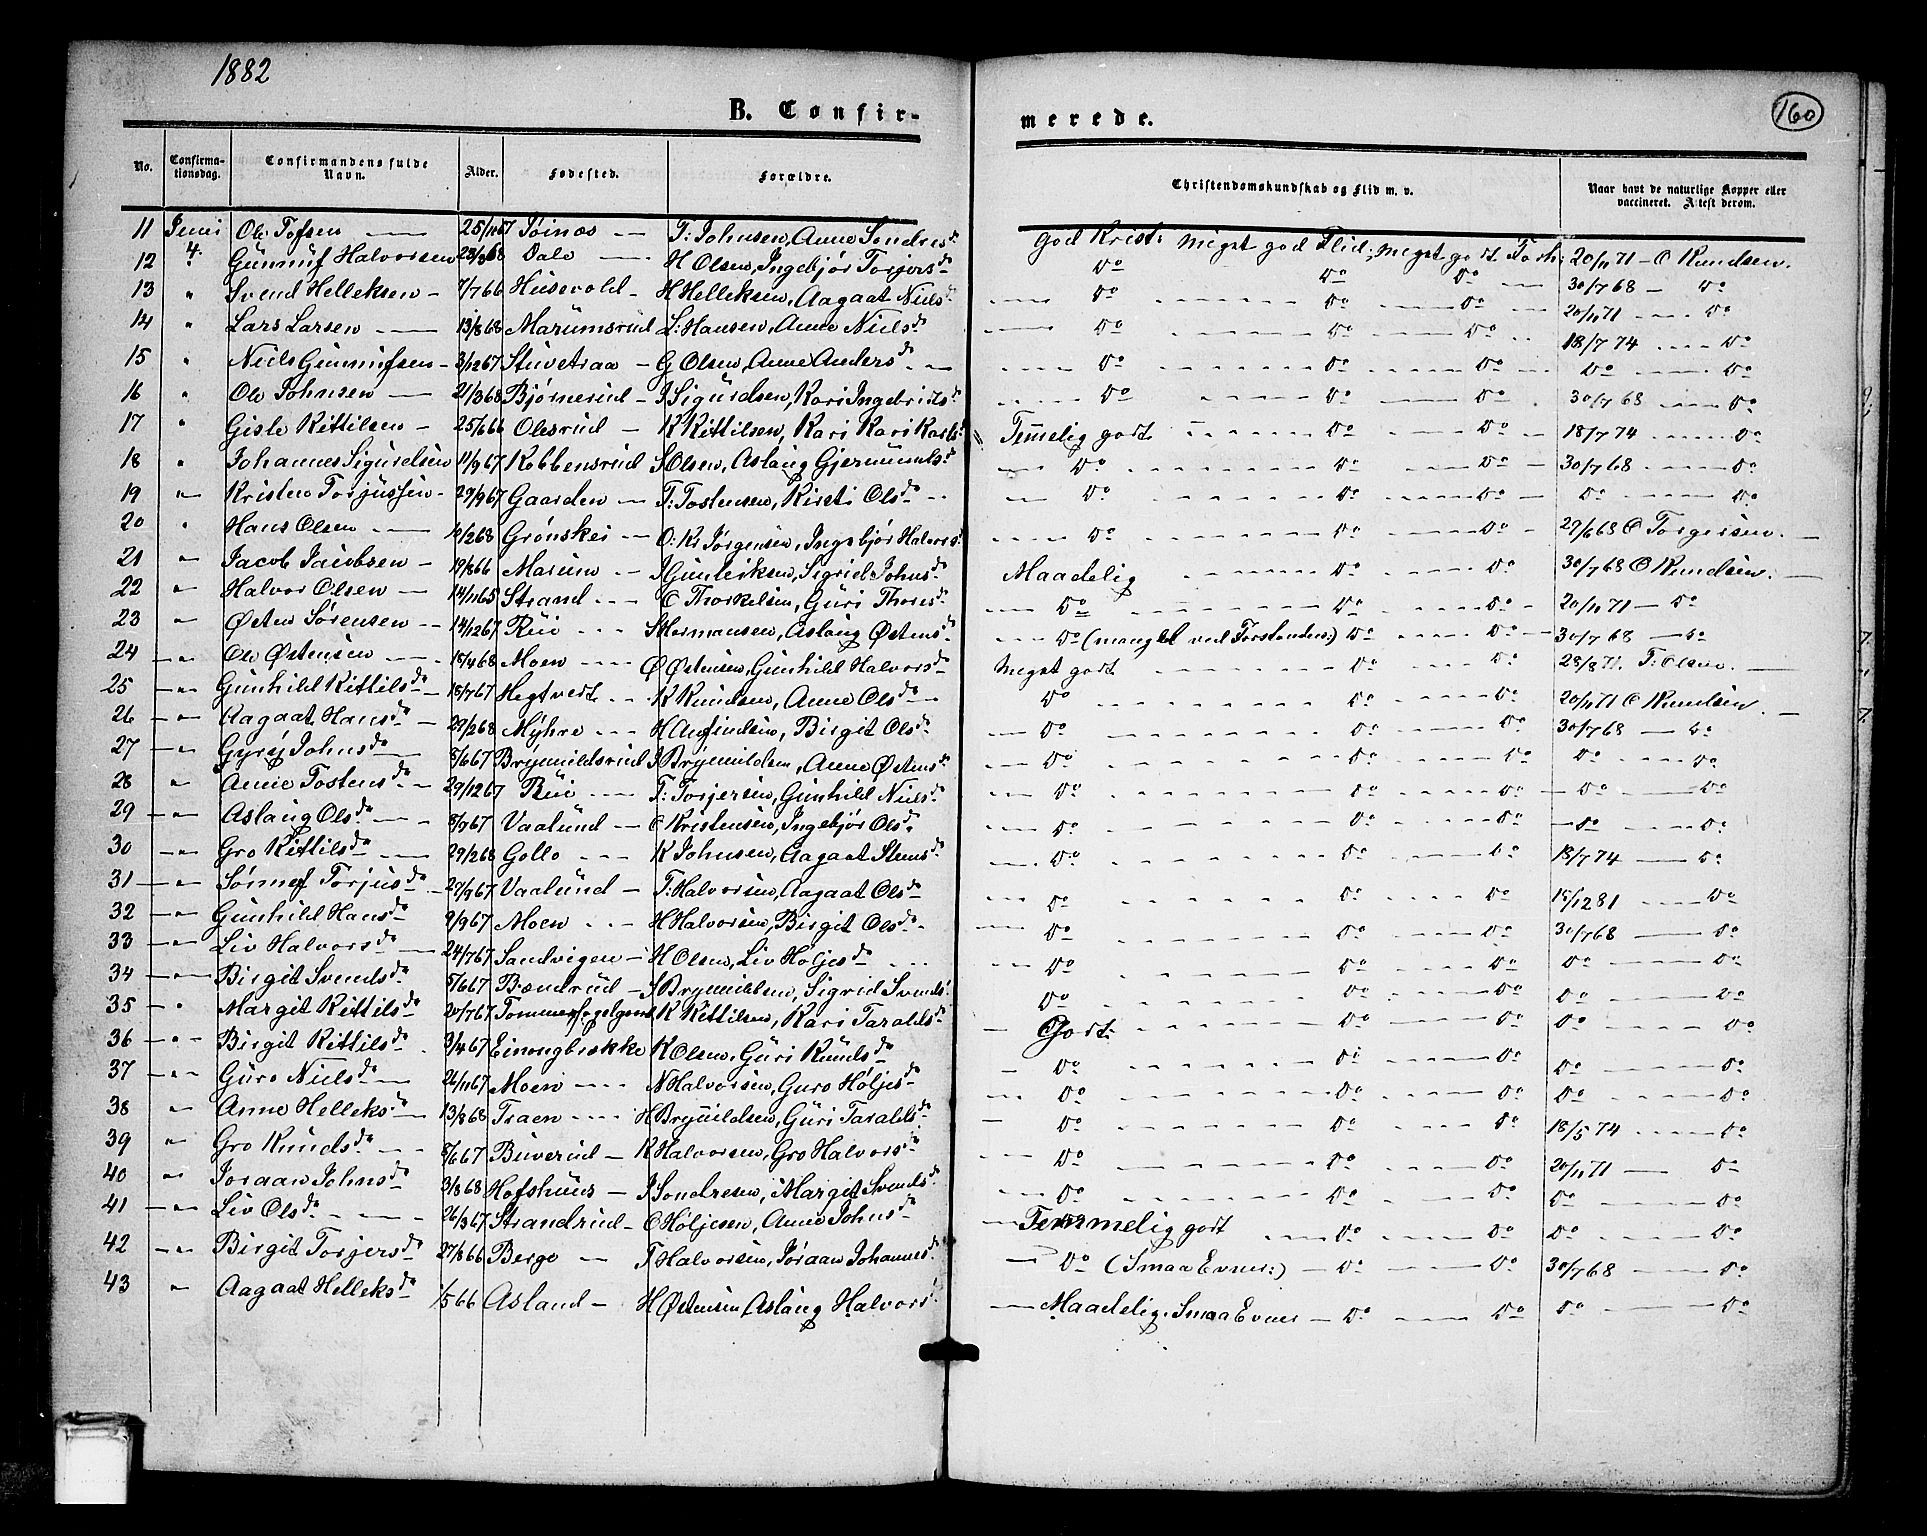 1882
160
B. Confirmerede.
No. Confirmationsdag. Confirmandens fulde Navn. Alder. Fødested. Forældre. Christendomskundskab og Flid m. v. Naar havt de naturlige Kopper eller vaccineret. Attest derom.
11 Juni 4. Ole Tofsen 25/1167 Tøinæs T: Johnsen, Anne Sondresdr God Krist: Meget god Flid, Meget godt Forh: 20/1171 O Knudsen.
12 Gunnuf Halvorsen 28/368 Dale H Olsen, Ingebjør Torjersdr Do Do Do 30/768 Do
13 " Svend Helleksen 7/766 Husevold H Helleksen, Aagaat Nielsdr Do Do Do 20/1171 Do
14 " Lars Larsen 13/868 Marumsrud L: Hansen, Anne Nielsdr Do Do Do 18/774 Do
15 " Niels Gunnufsen 3/1267 Stuvetraa G Olsen, Anne Andersdr Do Do Do Do Do
16 " Ole Johnsen 21/368 Bjørnerud J Sigurdsen, Kari Ingebritsdr Do Do Do 30/768 Do
17 " Gisle Kittilsen 25/666 Olesrud K Kittilsen, Kari Kari Karlsdr Temelig godt Do Do 18/774 Do
18 " Johannes Sigurdsen 11/967 Kobbensrud S Olsen, Aslaug Gjermundsdr Do Do Do 30/768 Do
19 " Kristen Torjussen 29/967 Gaarden T: Tostensen, Kirsti Olsdr Do Do Do Do Do
20 " Hans Olsen 10/268 Grønskei O: Kr Jørgensen, Ingebjør Halvorsdr Do Do Do 29/668 O Torgersen.
21 " Jacob Jacobsen 19/866 Marum J Gunleiksen, Sigrid Johnsdr Maadelig Do Do 30/768 O Knudsen.
22 " Halvor Olsen 14/1165 Strand O Thorkelsen, Guri Thoresdr Do Do Do 20/1171 Do
23 " Østen Sørensen 14/1267 Rui S Hermansen, Aslaug Østensdr Do (mangel ved Forstanden:) Do Do 30/768 Do
24 " Ole Østensen 18/468 Moen Ø Østensen, Gunhild Halvorsdr Meget godt Do Do 28/871. T: Olsen.
25 " Gunhild Kittilsdr 18/767 Hegtvedt K Knudsen, Anne Olsdr Do Do Do 20/1171 O Knudsen
26 " Aagaat Hansdr 29/268 Myhre H Anfindsen, Birgit Olsdr Do Do Do 30/768 Do
27 " Gyrø Johnsdr 8/667 Brynnildsrud J Brynnildsen, Anne Østensdr Do Do Do Do Do
28 " Anne Tostensdr 29/1267 Rui T: Torjersen, Gunhild Nielsdr Do Do Do Do Do
29 " Aslaug Olsdr 8/967 Vaalund O Kristensen, Ingebjør Olsdr Do Do Do Do Do
30 " Gro Kittilsdr 29/268 Gollo K Johnsen, Aagaat Stensdr Do Do Do 18/774 Do
31 " Sønnef Torjusdr 29/967 Vaalund T: Halvorsen, Aagaat Olsdr Do Do Do 15/1281 Do
32 " Gunhild Hansdr 9/967 Moen H Halvorsen, Birgit Olsdr Do Do Do 30/768 Do
33 " Liv Halvorsdr 24/767 Sandvigen H Olsen, Liv Høljesdr Do Do Do Do Do
34 " Birgit Svendsdr 8/667 Bændrud S Brynnildsen, Sigrid Svendsdr Do Do Do Do Do
35 " Margit Kittilsdr 20/767 K Kittilsen, Kari Taraldsdr Godt Do Do Do Do
36 " Birgit Kittilsdr 3/467 Einongbrække K Olsen, Guri Knudsdr Do Do Do Do Do
37 " Guro Nielsdr 24/1167 Moen N Halvorsen, Guro Høljesdr Do Do Do Do Do
38 " Anne Helleksdr 13/868 Traen H Brynildsen, Guri Taraldsdr Do Do Do 18/574 Do
39 " Gro Knudsdr 8/667 Buverud K Halvorsen, Gro Halvorsdr Do Do Do 20/1171 Do
40 " Joraan Johnsdr 3/868 Hofshuus J Sondresen, Margit Svendsdr Do Do Do Do Do
41 " Liv Olsdr 26/367 Strandrud O Høljesen, Anne Johnsdr Temmelig godt Do Do Do Do
42 " Birgit Torjersdr 27/866 Berge T Halvorsen, Jøraan Johannesdr Do (Smaa Evner:) Do Do 30/768 Do
43 " Aagaat Helleksdr 1/566 Asland H Østensen, Aslaug Halvorsdr Maadelig. Smaa Evner Do Do Do Do